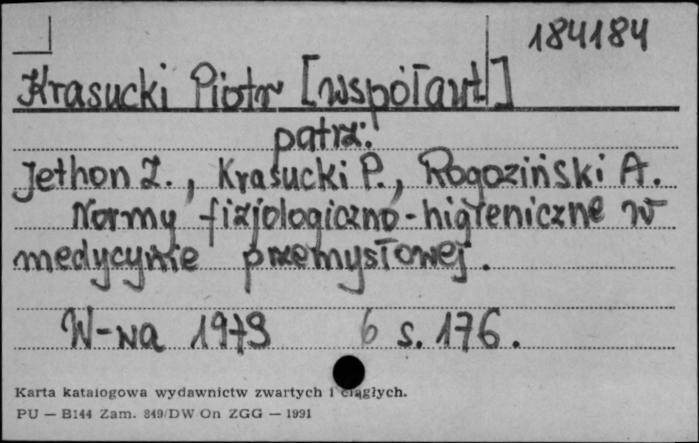 184184
Krasucki Piotr [współaut]
patrz:
Jethon Z., Krasucki P., Rogoziński A.
Normy fizjologiczno-higieniczne w
medycynie przemysłowej.
W-wa 1979 6 s. 176.
Karta katalogowa wydawnictw zwartych i ciągłych.
PU — B144 Zam. 849/DW On ZGG — 1991